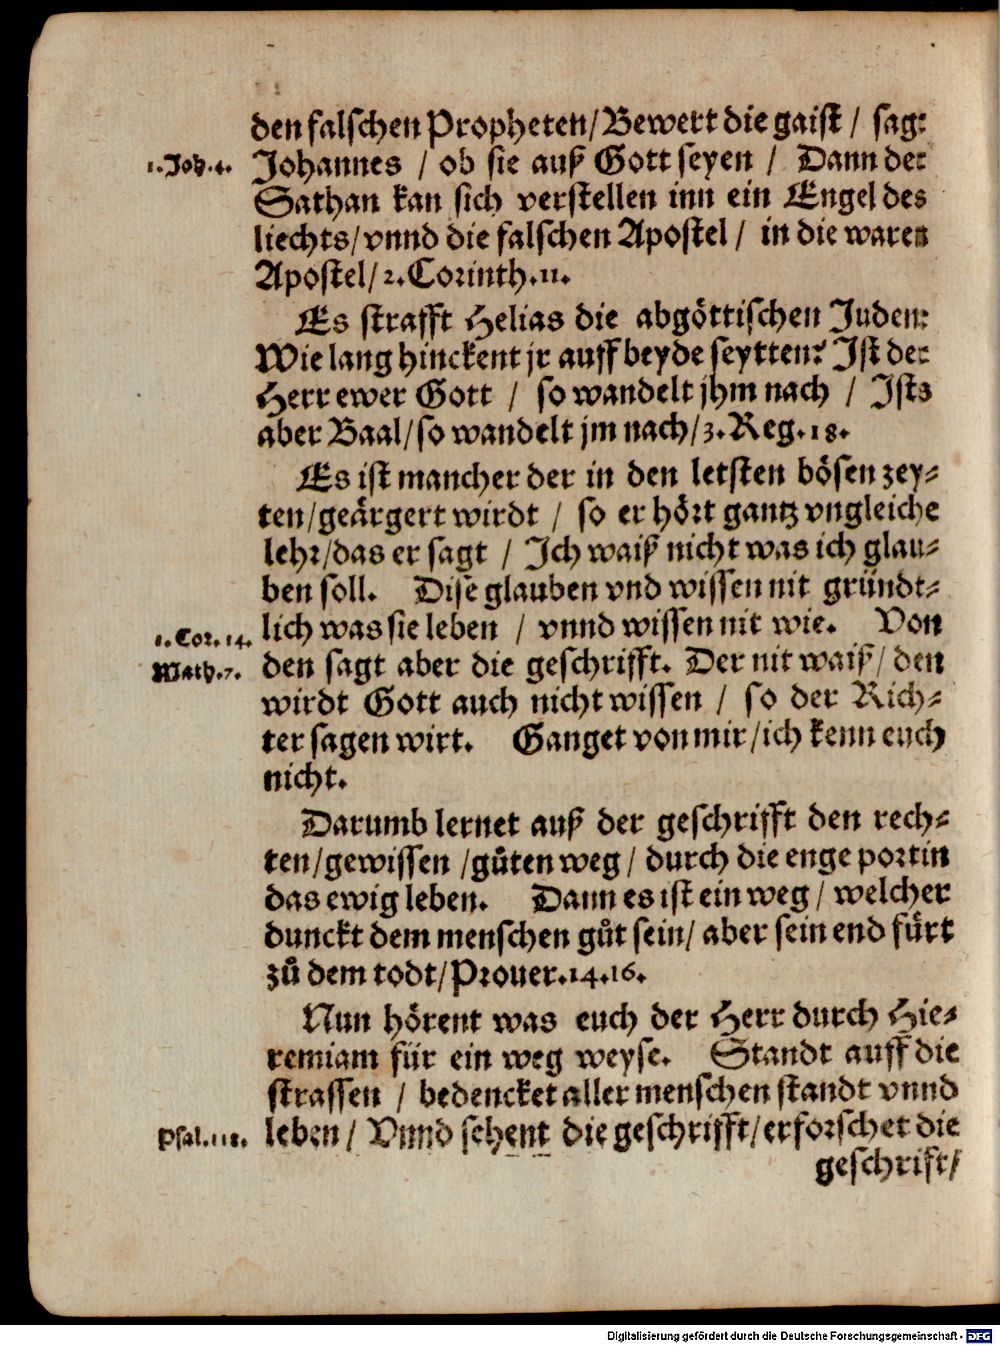 den falschen Propheten/Bewert die gaist / sagt
1.Joh.4.
Johannes / ob sie auß Gott seyen / Dann der
Sathan kan sich verstellen inn ein Engel des
liechts/vnnd die falschen Apostel / in die waren
Apostel/2.Corinth.11.
Es strafft Helias die abgöttischen Juden:
Wie lang hinckent jr auff beyde seytten? Ist der
Herr ewer Gott / so wandelt jhm nach / Ists
aber Baal/so wandelt jm nach/3.Reg.18.
Es ist mancher der in den letsten bösen zey-
ten/geärgert wirdt / so er hört gantz vngleiche
lehr/das er sagt / Ich waiß nicht was ich glau-
ben soll. Dise glauben vnd wissen nit gründt-
1.Cor.14.
lich was sie leben / vnnd wissen nit wie. Von
Math.7.
den sagt aber die geschrifft. Der nit waiß/ den
wirdt Gott auch nicht wissen / so der Rich-
ter sagen wirt. Ganget von mir/ich kenn euch
nicht.
Darumb lernet auß der geschrifft den rech-
ten/gewissen /gůten weg/ durch die enge portin
das ewig leben. Dann es ist ein weg/ welcher
dunckt dem menschen gůt sein/ aber sein end fürt
zů dem todt/Prouer.14.16.
Nun hörent was euch der Herr durch Hie-
remiam für ein weg weyse. Standt auff die
strassen / bedencket aller menschen standt vnnd
Psal.118.
leben/ Vnnd sehent die geschrifft/erforschet die
geschrift/
Digitalisierung gefördert durch die Deutsche Forschungsgemeinschaft - DFG